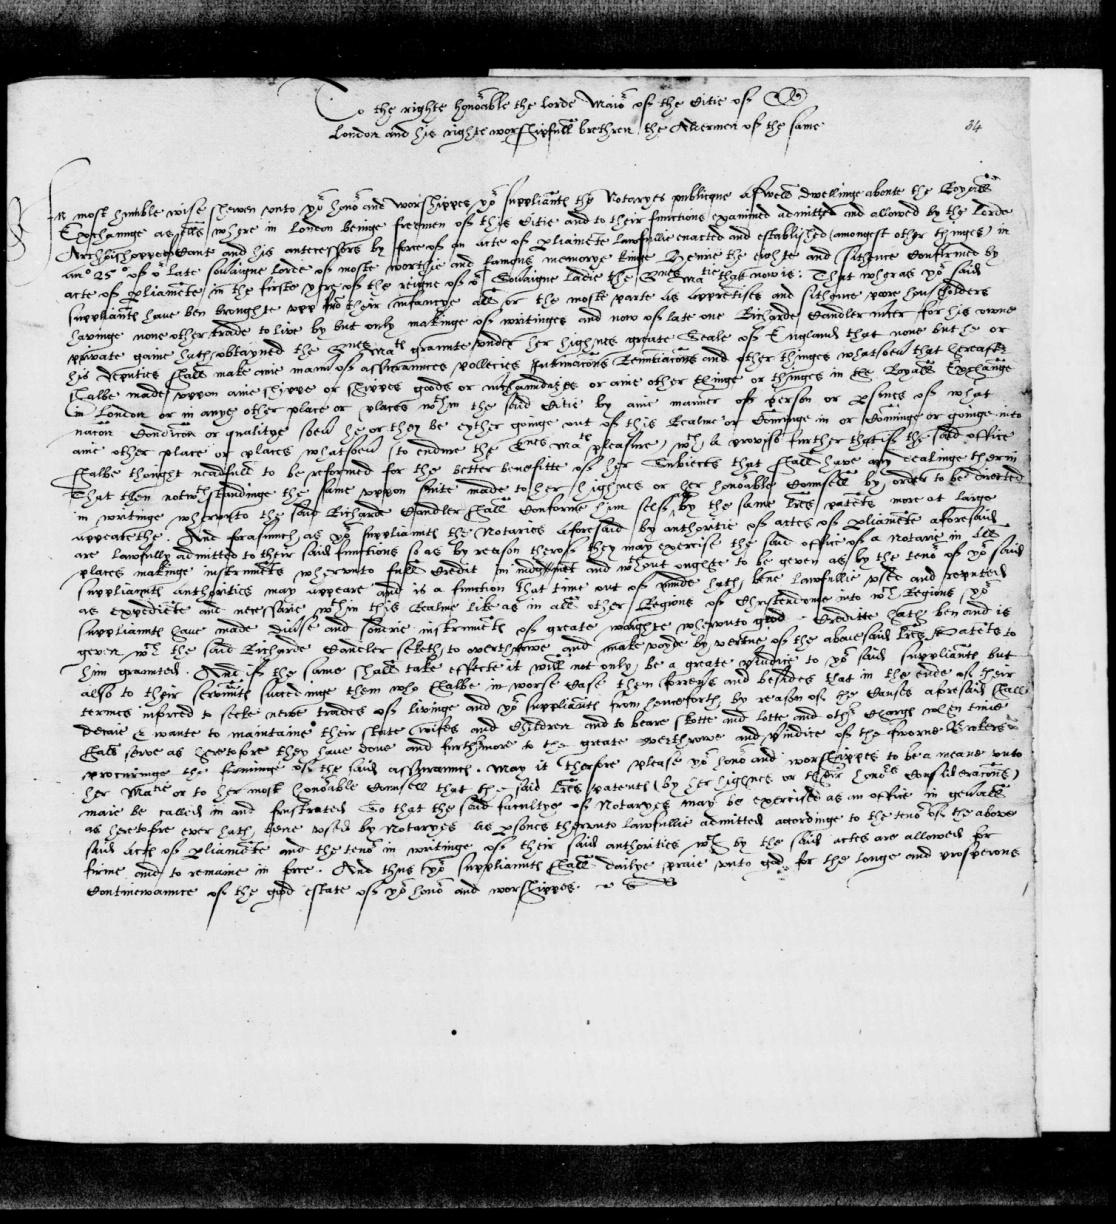 To the righte honorable the lorde Maior of the Citie of
London and his righte worshipfull brethren the Aldermen of the same
34
In most humble wise shewen unto yor honor and worshippes yor suppliantes the Notaryes publique aswell dwellinge aboute the Royall
Exchaunge as elles where in London beinge freemen of this Citie and to their functions examined admitted and allowed by the Lorde
Archbushoppe of Cant and his antecessors by force of an acte of pliamente lawfullie enacted and established (amongest other thinges) in
an° 25° of or late soveraigne lorde of moste worthie and famous memorye kinge Henrie the eighte and sithence confirmed by
acte of pliamente in the firste yere of the reigne of or Soveraigne Ladie the Quenes Matie that now is: That wheras yor said
suppliantes have ben broughte upp from their infancye all or the moste parte as apprentises and sithence poore housholders
havinge none other trade to live by but only makinge of writinges and now of late one Richarde Candler mercer for his owne
private gaine hath obtayned the Quenes Maties graunte under her highnes greate Seale of England that none but he or
his deputies shall make anie maner of assuraunces pollecies Intimacons Renunciacons and other thinges whatsoever that hereafter
shalbe made uppon anie shippe or shippes goods or merchaundizes or anie other thinge or thinges in the Royall Exchange
in London or in anye other place or places wthin the said Citie by anie manner of person or psones of what
nacon Condicon or qualitye soever he or they be eyther goinge out of this Realme or Cominge in or Cominge or goinge into
anie other place or places whatsoever (to endure the Quenes Maties pleasure) wth a proviso further that if the said office
shalbe thought nedefull to be reformed for the better benefitte of her Subiects that shall have any dealinge therin
That then notwthstandinge the same uppon suite made to her highnes or her honorable Counsell by order to be directed
in writinge wherunto the said Richarde Candler shall conforme him self, as by the same lres patents more at large
appeareth. And forasmuch as yor suppliantes the Notaries aforesaid by authoritie of actes of pliamente aforesaid
are lawfully admitted to their said functions so as by reason therof they may exercise the said office of a Notarie in all
places makinge instruments wherunto full Credit in iudgment and wthout oughte to be geven as by the tenor of yor said
suppliantes authorities may appeare and is a function that time out of minde hath bene lawfullie used and reputed
as expediente and necessarie wthin this Realme like as in all other Regions of Christendome into wch Regions yor
suppliantes have made diverse and sonderie instruments of greate waighte wherunto good Creditte hath ben and is
geven wch the said Richarde Candeler seketh to overthrowe and make voyde by vertue of the abovesaid lres Patents to
him graunted. And if the same shall take effecte it will not only be a greate preiudice to yor said suppliantes but
also to their servaunts succedinge them who shalbe in worse case then forens and besides that in the ende of their
termes inforced to seeke newe trades of livinge and yor suppliantes from henceforth by reason of the causes aforesaid shall
decaie & wante to maintaine their state wifes and children and to beare skotte and lotte and other charges when time
shall serve as heretofore they have done and furthermore to the greate overthrowe and preiudice of the sworne brokers
procuringe the firminge of the said assuraunces. May it therfore please yor honor and worshippes to be a meane unto
her Matie or to her most honorable Counsell that the said lres patents (by her highnes or their honors Consideracons)
maie be called in and frustrated So that the said facultye of Notaryes may be exercised as an office in generall
as heretofore ever hath bene used by Notaryes as psones therunto lawfullie admitted accordinge to the tenor of the above
said Acte of pliamente and the tenor in writinge of their said authorities wch by the said actes are allowed for
firme and to remaine in force. And thus yor suppliantes shall dailye praie unto god for the longe and prosperous
Continewaunce of the good estate of yor honor and worshippes.